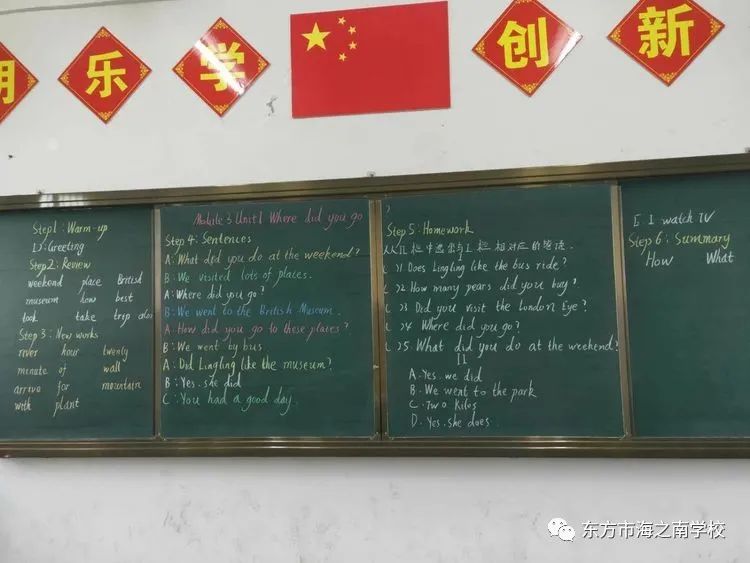 朋 乐 学 创 新
Step1: Warm-up
1): Greeting
Step2: Review
weekend place British
museum how best
took take trip also
Step 3: New works
river hour twenly
minute of wall
arrive for mountain
with plant
Module 3 Unit1 Where did you go
?
Step 4: Sentences
A: What did you do at the weekend?
B: We visited lots of places.
A: Where did you go?
B: We went to the British Museum.
A: How did you go to these places?
B: We went by bus.
A: Did Lingling like the museum?
B: Yes. she did
C: You had a good day.
Step 5: Homework
从II栏中选出与I栏相对应的答语.
I
( )1 Does Lingling like the bus ride?
( )2 How many pears did you buy?
( )3 Did you visit the London Eye?
( )4 Where did you go?
( )5. What did you do at the weekend?
II
A. Yes. we did
B. We went to the park
C. Two kilos
D. Yes. she does.
E I watch TV
Step 6: Summary
How What
东方市海之南学校